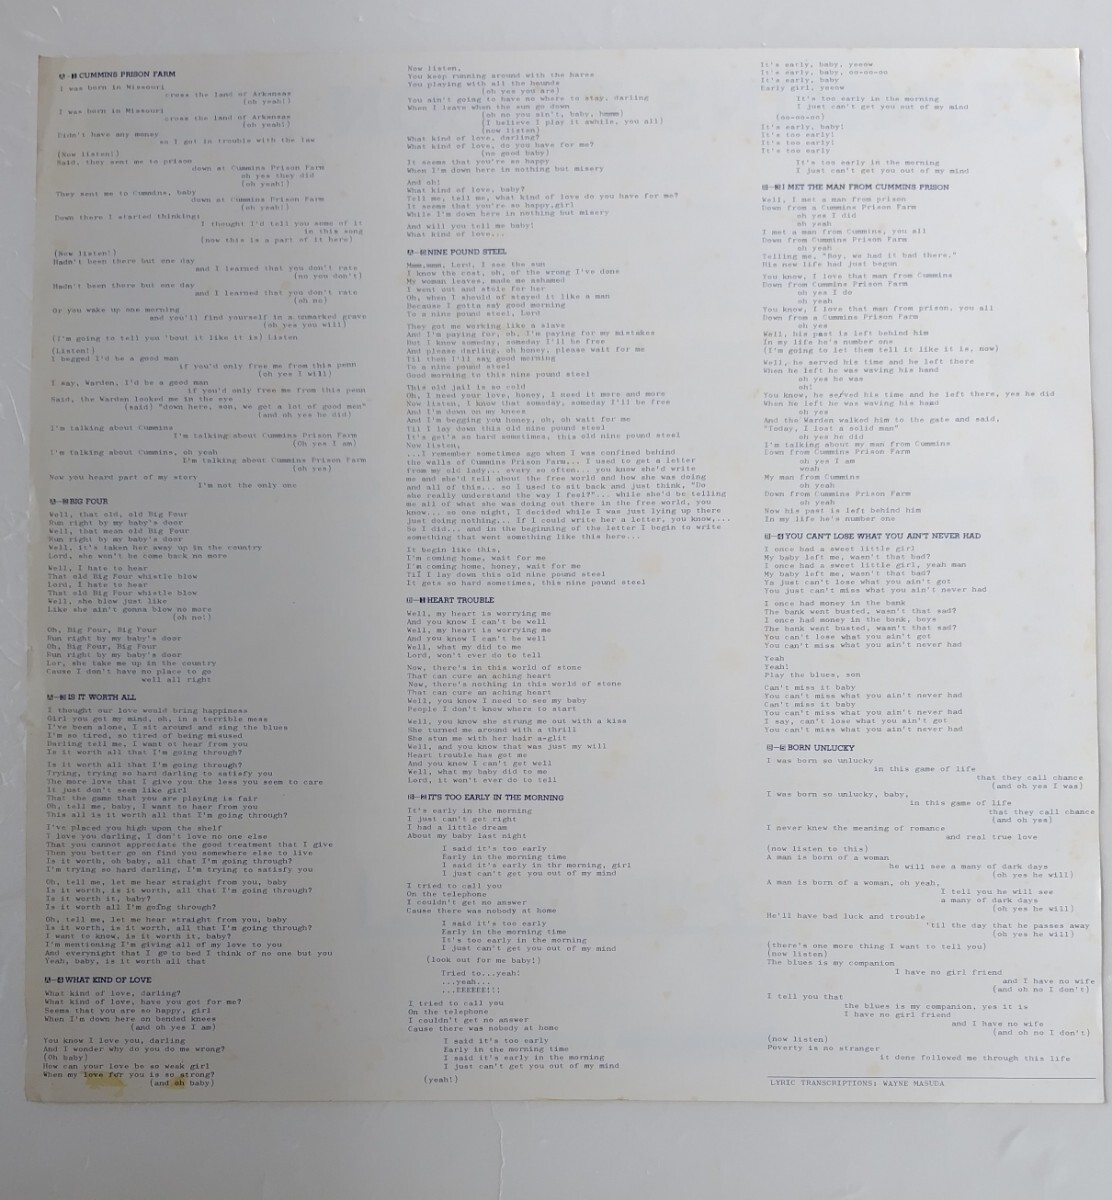 A-1 CUMMINS PRISON FARM
I was born in Missouri
cross the land of Arkansas
(oh yeah!)
I was born in Missouri
cross the land of Arkansas
(oh yeah!)
Didn't have any money
so I got in trouble with the law
(Now listen!)
Said, they sent me to prison
down at Cummins Prison Farm
oh yes they did
(oh yeah!)
They sent me to Cummins, baby
down at Cummins Prison Farm
(oh yeah!)
Down there I started thinking:
I thought I'd tell you some of it
in this song
(now this is a part of it here)
(Now listen!)
Hadn't been there but one day
and I learned that you don't rate
(no you don't)
Hadn't been there but one day
and I learned that you don't rate
(oh no)
Or you wake up one morning
and you'll find yourself in a unmarked grave
(oh yes you will)
(I'm going to tell you 'bout it like it is) listen
(Listen!)
I begged I'd be a good man
if you'd only free me from this penn
(oh yes I will)
I say, Warden, I'd be a good man
if you'd only free me from this penn
Said, the Warden looked me in the eye
(said) "down here, son, we got a lot of good men"
(and oh yes he did)
I'm talking about Cummins
I'm talking about Cummins Prison Farm
(Oh yes I am)
I'm talking about Cummins, oh yeah
I'm talking about Cummins Prison Farm
(oh yes)
Now you heard part of my story
I'm not the only one
A-2 BIG FOUR
Well, that old, old Big Four
Run right by my baby's door
Well, that mean old Big Four
Run right by my baby's door
Well, it's taken her away up in the country
Lord, she won't be come back no more
Well, I hate to hear
That old Big Four whistle blow
Lord, I hate to hear
That old Big Four whistle blow
Well, she blow just like
Like she ain't gonna blow no more
(oh no!)
Oh, Big Four, Big Four
Run right by my baby's door
Oh, Big Four, Big Four
Run right by my baby's door
Lor, she take me up in the country
Cause I don't have no place to go
well all right
A-3 IS IT WORTH ALL
I thought our love would bring happiness
Girl you got my mind, oh, in a terrible mess
I've been alone, I sit around and sing the blues
I'm so tired, so tired of being misused
Darling tell me, I want ot hear from you
Is it worth all that I'm going through?
Is it worth all that I'm going through?
Trying, trying so hard darling to satisfy you
The more love that I give you the less you seem to care
It just don't seem like girl
That the game that you are playing is fair
Oh, tell me, baby, I want to haer from you
This all is it worth all that I'm going through?
I've placed you high upon the shelf
I love you darling, I don't love no one else
That you cannot appreciate the good treatment that I give
Then you better go on find you somewhere else to live
Is it worth, oh baby, all that I'm going through?
I'm trying so hard darling, I'm trying to satisfy you
Oh, tell me, let me hear straight from you, baby
Is it worth, is it worth, all that I'm going through?
Is it worth it, baby?
Is it worth all I'm going through?
Oh, tell me, let me hear straight from you, baby
Is it worth, is it worth, all that I'm going through?
I want to know, is it worth it, baby?
I'm mentioning I'm giving all of my love to you
And everynight that I go to bed I think of no one but you
Yeah, baby, is it worth all that
A-4 WHAT KIND OF LOVE
What kind of love, darling?
What kind of love, have you got for me?
Seems that you are so happy, girl
When I'm down here on bended knees
(and oh yes I am)
You know I love you, darling
And I wonder why do you do me wrong?
(Oh baby)
How can your love be so weak girl
When my love for you is so strong?
(and oh baby)
Now listen,
You keep running around with the hares
You playing with all the hounds
(oh yes you are)
You ain't going to have no where to stay, darling
When I leave when the sun go down
(oh no you ain't, baby, hmmm)
(I believe I play it awhile, you all)
(now listen)
What kind of love, darling?
What kind of love, do you have for me?
(no good baby)
It seems that you're so happy
When I'm down here in nothing but misery
And oh!
What kind of love, baby?
Tell me, tell me, what kind of love do you have for me?
It seems that you're so happy,girl
While I'm down here in nothing but misery
And will you tell me baby!
What kind of love...
A-5 NINE POUND STEEL
Mmm,mmm, Lord, I see the sun
I know the cost, oh, of the wrong I've done
My woman leaves, made me ashamed
I went out and stole for her
Oh, when I should of stayed it like a man
Because I gotta say good morning
To a nine pound steel, Lord
They got me working like a slave
And I'm paying for, oh, I'm paying for my mistakes
But I know someday, someday I'll be free
And please darling, oh honey, please wait for me
Til then I'll say good morning
To a nine pound steel
Good morning to this nine pound steel
This old jail is so cold
Oh, I need your love, honey, I need it more and more
Now listen, I know that someday, someday I'll be free
And I'm down on my knees
And I'm begging you honey, oh, oh wait for me
Til I lay down this old nine pound steel
It's get's so hard sometimes, this old nine pound steel
Now listen,
...I remember sometimes ago when I was confined behind
the walls of Cummins Prison Farm... I used to get a letter
from my old lady... every so often... you know she'd write
me and she'd tell about the free world and how she was doing
and all of this... so I used to sit back and just think, "Do
she really understand the way I feel?"... while she'd be telling
me all of what she was doing out there in the free world, you
know... so one night, I decided while I was just lying up there
just doing nothing... If I could write her a letter, you know,...
So I did... and in the beginning of the letter I begin to write
something that went something like this here...
It begin like this,
I'm coming home, wait for me
I'm coming home, honey, wait for me
Til I lay down this old nine pound steel
It gets so hard sometimes, this nine pound steel
B-1 HEART TROUBLE
Well, my heart is worrying me
And you know I can't be well
Well, my heart is worrying me
And you know I can't be well
Well, what my did to me
Lord, won't ever do to tell
Now, there's in this world of stone
That can cure an aching heart
Now, there's nothing in this world of stone
That can cure an aching heart
Well, you know I need to see my baby
People I don't know where to start
Well, you know she strung me out with a kiss
She turned me around with a thrill
She stun me with her hair a-glit
Well, and you know that was just my will
Heart trouble has got me
And you know I can't get well
Well, what my baby did to me
Lord, it won't ever do to tell
B-2 IT'S TOO EARLY IN THE MORNING
It's early in the morning
I just can't get right
I had a little dream
About my baby last night
I said it's too early
Early in the morning time
I said it's early in the morning, girl
I just can't get you out of my mind
I tried to call you
On the telephone
I couldn't get no answer
Cause there was nobody at home
I said it's too early
Early in the morning time
It's too early in the morning
I just can't get you out of my mind
(look out for me baby!)
Tried to...yeah!
...yeah...
...EEEEEE!!!
I tried to call you
On the telephone
I couldn't get no answer
Cause there was nobody at home
I said it's too early
Early in the morning time
I said it's early in the morning
I just can't get you out of my mind
(yeah!)
It's early, baby, yeeow
It's early, baby, oo-oo-oo
It's early, baby
Early girl, yeeow
It's too early in the morning
I just can't get you out of my mind
(oo-oo-oo)
It's early, baby!
It's too early!
It's too early!
It's too early
It's too early in the morning
I just can't get you out of my mind
B-3 I MET THE MAN FROM CUMMINS PRISON
Well, I met a man from prison
Down from a Cummins Prison Farm
oh yes I did
oh yeah
I met a man from Cummins, you all
Down from Cummins Prison Farm
oh yeah
Telling me, "Boy, we had it bad there."
His new life had just begun
You know, I love that man from Cummins
Down from Cummins Prison Farm
oh yes I do
oh yeah
You know, I love that man from prison, you all
Down from a Cummins Prison Farm
oh yes
Well, his past is left behind him
In my life he's number one
(I'm going to let them tell it like it is, now)
Well, he served his time and he left there
When he left he was waving his hand
oh yes he was
oh!
You know, he served his time and he left there, yes he did
When he left he was waving his hand
oh yes
And the Warden walked him to the gate and said,
"Today, I lost a solid man"
oh yes he did
I'm talking about my man from Cummins
Down from Cummins Prison Farm
oh yes I am
woah
My man from Cummins
oh yeah
Down from Cummins Prison Farm
oh yeah
Now his past is left behind him
In my life he's number one
B-4 YOU CAN'T LOSE WHAT YOU AIN'T NEVER HAD
I once had a sweet little girl
My baby left me, wasn't that bad?
I once had a sweet little girl, yeah man
My baby left me, wasn't that bad?
Ya just can't lose what you ain't got
You just can't miss what you ain't never had
I once had money in the bank
The bank went busted, wasn't that sad?
I once had money in the bank, boys
The bank went busted, wasn't that sad?
You can't lose what you ain't got
You can't miss what you ain't never had
Yeah
Yeah!
Play the blues, son
Can't miss it baby
You can't miss what you ain't never had
Can't miss it baby
You can't miss what you ain't never had
I say, can't lose what you ain't got
You can't miss what you ain't never had
B-5 BORN UNLUCKY
I was born so unlucky
in this game of life
that they call chance
(and oh yes I was)
I was born so unlucky, baby,
in this game of life
that they call chance
(and oh yes)
I never knew the meaning of romance
and real true love
(now listen to this)
A man is born of a woman
he will see a many of dark days
(oh yes he will)
A man is born of a woman, oh yeah,
I tell you he will see
a many of dark days
(oh yes he will)
He'll have bad luck and trouble
'til the day that he passes away
(oh yes he will)
(there's one more thing I want to tell you)
(now listen)
The blues is my companion
I have no girl friend
and I have no wife
(and oh no I don't)
I tell you that
the blues is my companion, yes it is
I have no girl friend
and I have no wife
(and oh no I don't)
(now listen)
Poverty is no stranger
it done followed me through this life
LYRIC TRANSCRIPTIONS: WAYNE MASUDA